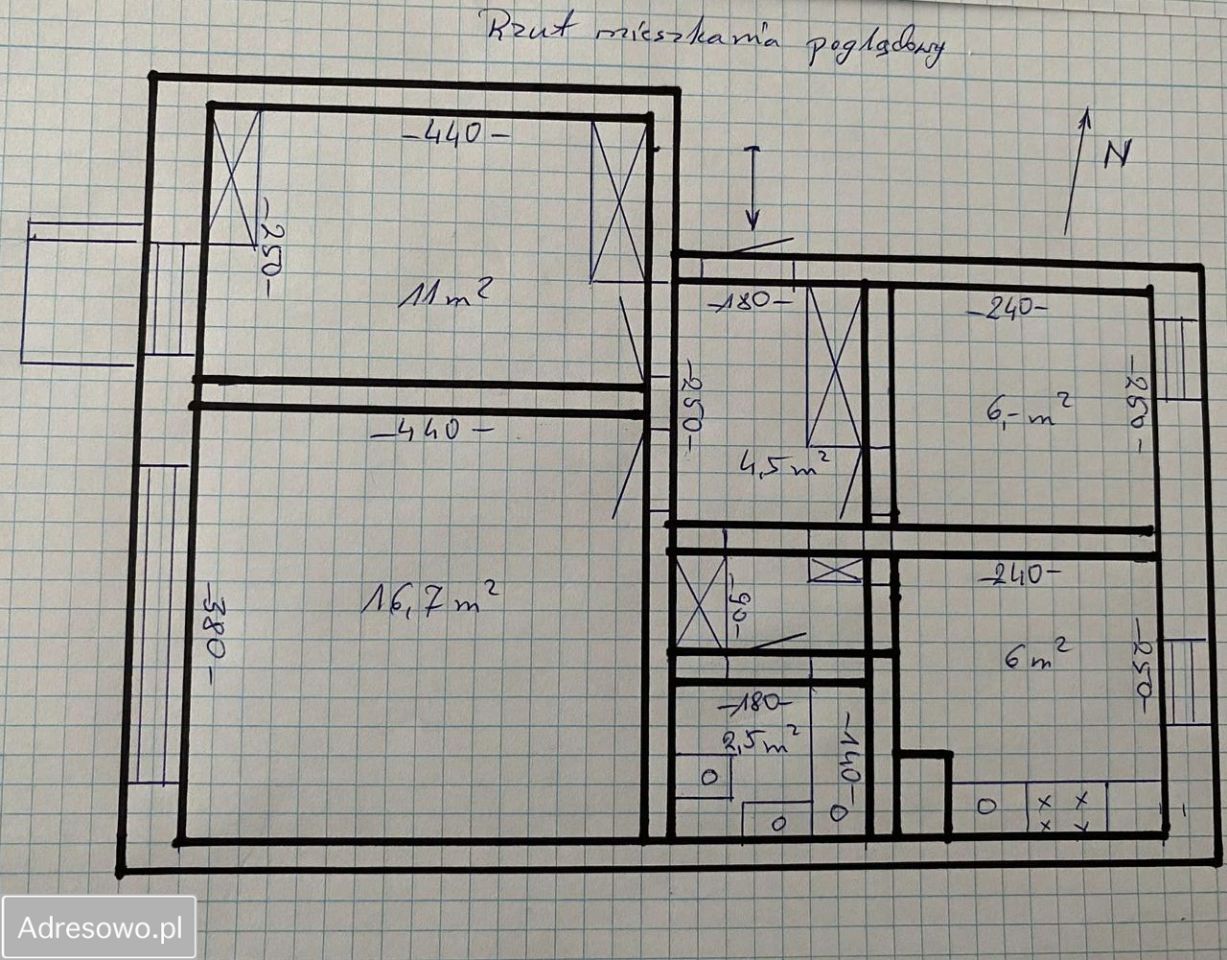 Rzut mieszkania poglądowy
N
-440-
-250-
11 m²
-180-
-240-
-250-
-250-
6,- m²
4,5 m²
-440-
-380-
16,7 m²
-90-
-240-
6 m²
-250-
-180-
2,5 m²
-140-
Adresowo.pl